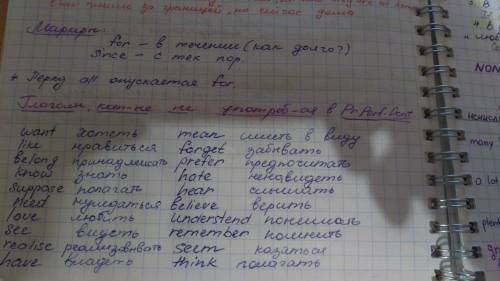 за границей, но сейчас дома
Маркиры:
for – в течении (как долго?)
since – с тех пор.
+ Перед all опускается for.
Глаголы, кот-ые не употреб-ся в Pr. Perf. Cont.
want хотеть mean иметь в виду
like нравиться forget забывать
belong принадлежать prefer предпочитать
know знать hate ненавидеть
suppose полагать hear слышать
need нуждаться believe верить
love любить understand понимать
see видеть remember помнить
realise реализовывать seem казаться
have владеть think полагать
NON
many